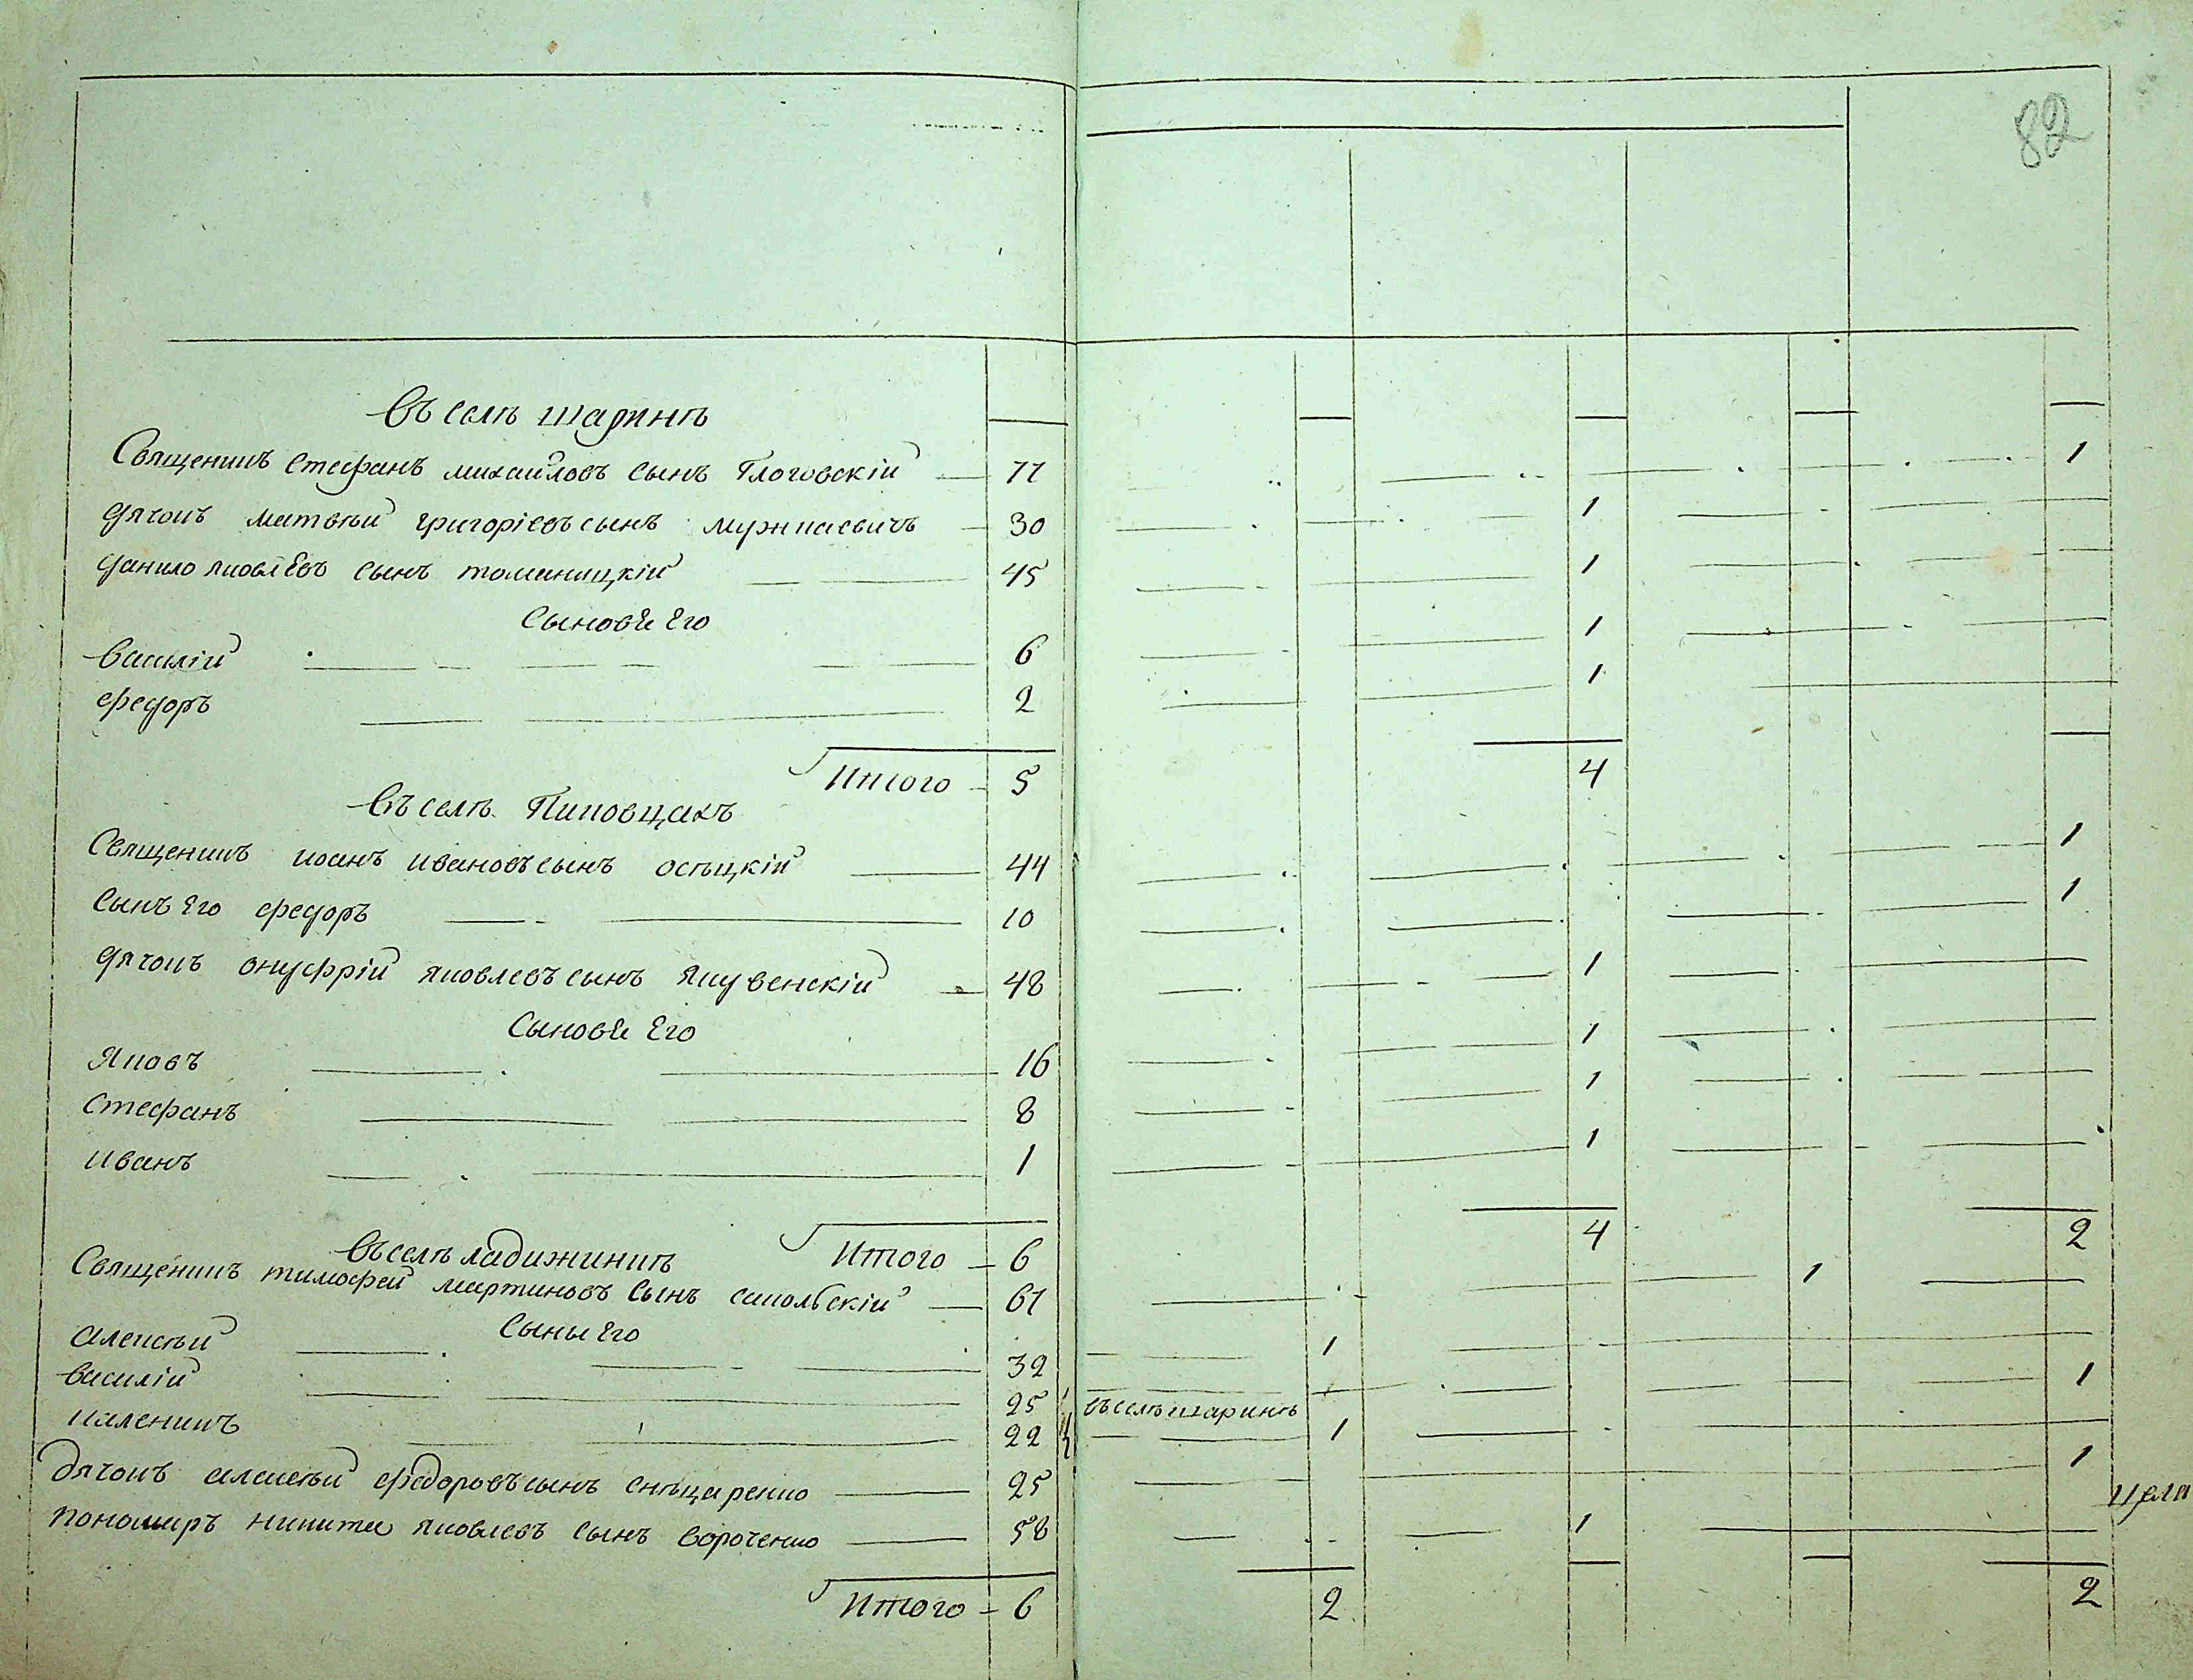 82
Въ селѣ шаринѣ
Священикъ стефанъ михаиловъ сынъ Глоговскій 77 1
дячокъ матвѣй григоріевъ сынъ 30 1
данило яковлевъ сынъ томашицкій 45 1
Сынове Его
василій 6 1
федоръ 2 1
Итого 5 4
Въ селѣ Пиковцахъ
Священикъ иоанъ ивановъ сынъ осѣцкій 44 1
Сынъ Его федоръ 10 1
дячокъ онуфрій яковлевъ сынъ Якувенскій 48 1
Сынове Его
Яковъ 16 1
Стефанъ 8 1
иванъ 1 1
Итого 6 4 2
Въ селѣ ладижинкѣ
Священикъ тимофей мартиновъ Сынъ сикольскій 61 1
Сыны Его
алексѣй 32 1
василій 25 въ селѣ шаринѣ 1
каленикъ 22 1
Дячокъ алексѣй федоровъ сынъ снѣцаренко 25 1
пономаръ никита яковлевъ сынъ вороченко 58 1
Итого 6 2 2